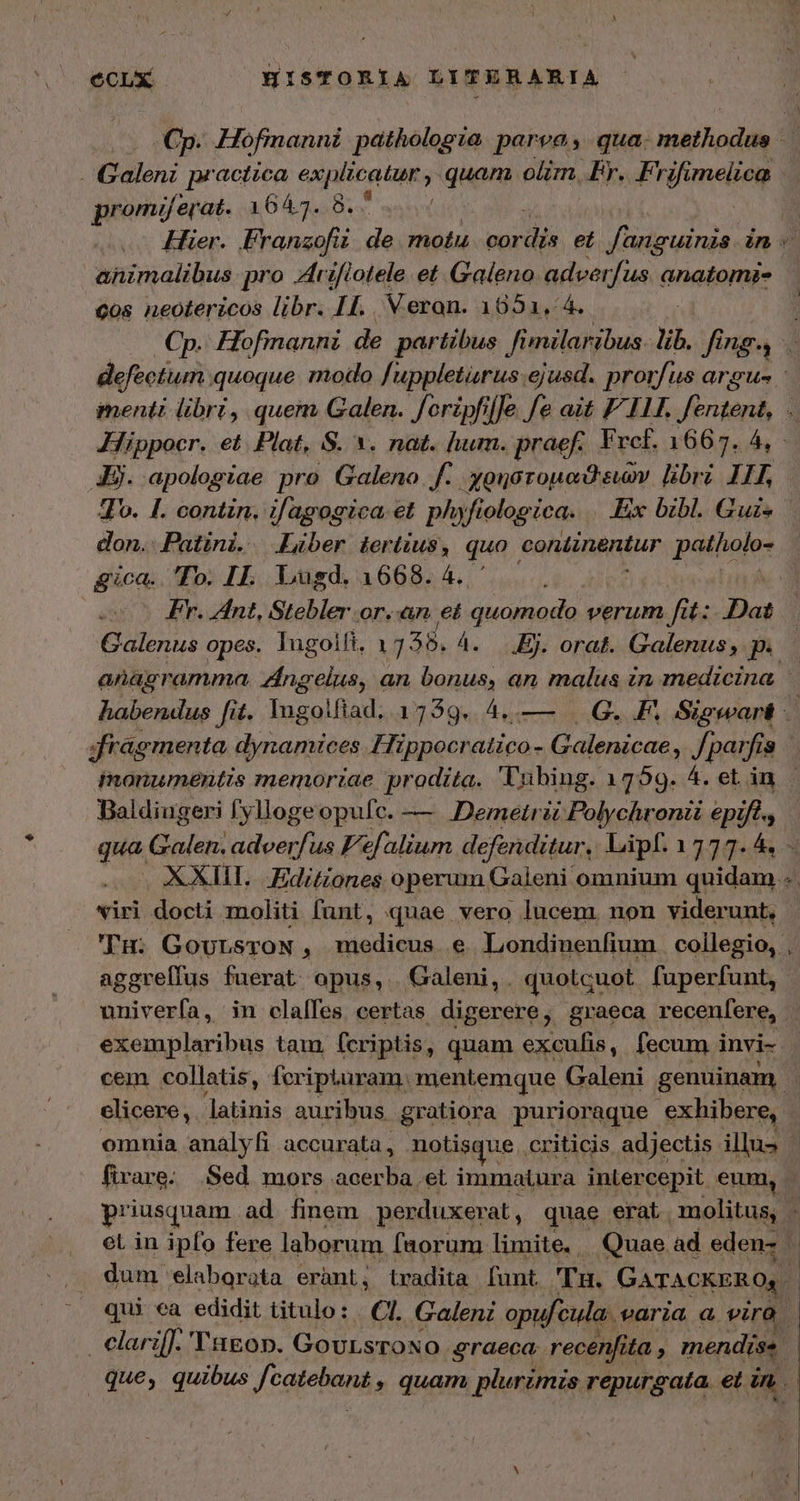 CCLX HISTORIA LITERARIA
Cp. Hofmanni pathologia parva, qua methodus
Galeni practica explicatur, quam olim Fr. Friſimelica
promiſerat. 1647. 8.
Hier. Franzoſii de motu cordis et ſanguinis in
animalibus pro Ariſtotele et Galeno adverſus anatomi-
cos neotericos libr. II. Veron. 1651, 4.
Cp. Hofmanni de partibus ſimilaribus lib. ſing.,
defectum quoque modo ſuppleturus ejusd. prorſus argu-
menti libri, quem Galen. ſcripſiſſe ſe ait VIII. ſentent,
Hippocr. et Plat, S. 1. nat. hum. praef. Frcf. 1667. 4,
Ej. apologiae pro Galeno ſ. χρηστομαθειῶν libri III,
To. I. contin. iſagogica et phyſiologica. Ex bibl. Gui-
don. Patini. Liber tertius, quo continentur patholo-
gica. To. II. Lugd. 1668. 4.
Fr. Ant. Stebler or. an et quomodo verum ſit: Dat
Galenus opes. Ingolſt. 1738. 4. Ej. orat. Galenus, p.
anagramma Angelus, an bonus, an malus in medicina
habendus ſit. Ingolſtad. 1739. 4. — G. F. Sigwart
fragmenta dynamices Hippocratico-Galenicae, ſparſis
monumentis memoriae prodita. Tubing. 1759. 4. et in
Baldingeri ſylloge opuſc. — Demetrii Polychronii epiſt.,
qua Galen. adverſus Veſalium defenditur, Lipſ. 1777. 4,
XXIII. Editiones operum Galeni omnium quidam
viri docti moliti ſunt, quae vero lucem non viderunt,
TH. GOULSTON, medicus e Londinenſium collegio,
aggreſſus fuerat opus, Galeni, quotquot ſuperſunt,
univerſa, in claſſes certas digerere, graeca recenſere,
exemplaribus tam ſcriptis, quam excuſis, ſecum invi-
cem collatis, ſcripturam mentemque Galeni genuinam
elicere, latinis auribus gratiora purioraque exhibere,
omnia analyſi accurata, notisque criticis adjectis illu-
ſtrare. Sed mors acerba et immatura intercepit eum,
priusquam ad finem perduxerat, quae erat molitus,
et in ipſo fere laborum ſuorum limite. Quae ad eden-
dum elaborata erant, tradita ſunt TH. GATACKERO,
qui ea edidit titulo: Cl. Galeni opuſcula varia a viro
clariſſ. THEOD. GOULSTONO graeca recenſita, mendis-
que, quibus ſcatebant, quam plurimis repurgata et in